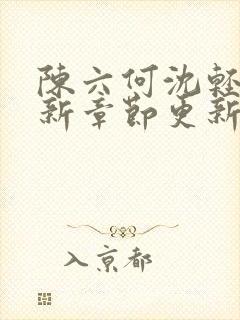 陳六何沈輕
新章節更新
入京都